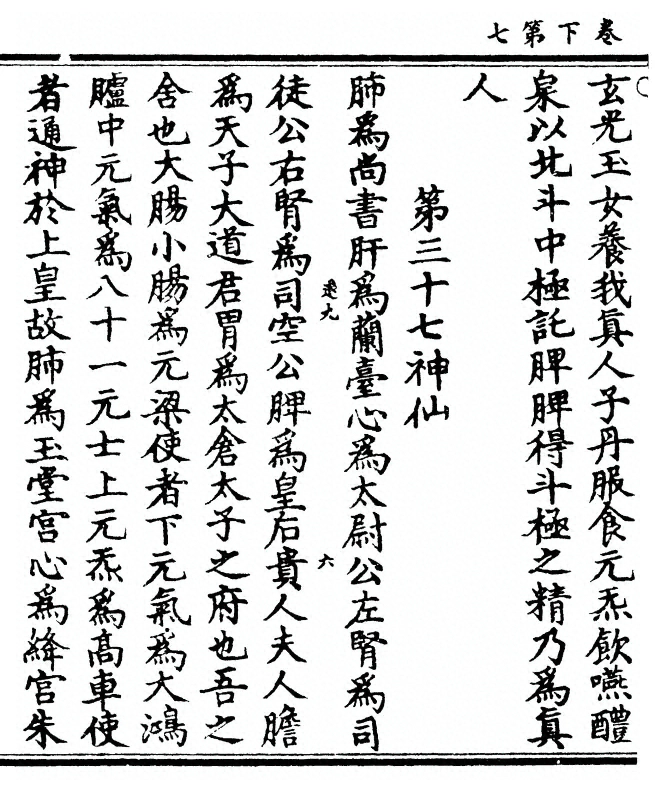 卷下第七
玄光玉女養我真人子丹服食元炁飲嚥醴
泉以北斗中極託脾脾得斗極之精乃爲真
人
第三十七神仙
肺爲尚書肝爲蘭臺心爲太尉公左腎爲司
徒公右腎爲司空公脾爲皇后貴人夫人膽
爲天子大道君胃爲太倉太子之府也吾之
舍也大腸小腸爲元梁使者下元氣爲大鴻
臚中元氣爲八十一元士上元炁爲高車使
者通神於上皇故肺爲玉堂宮心爲絳宮朱
六